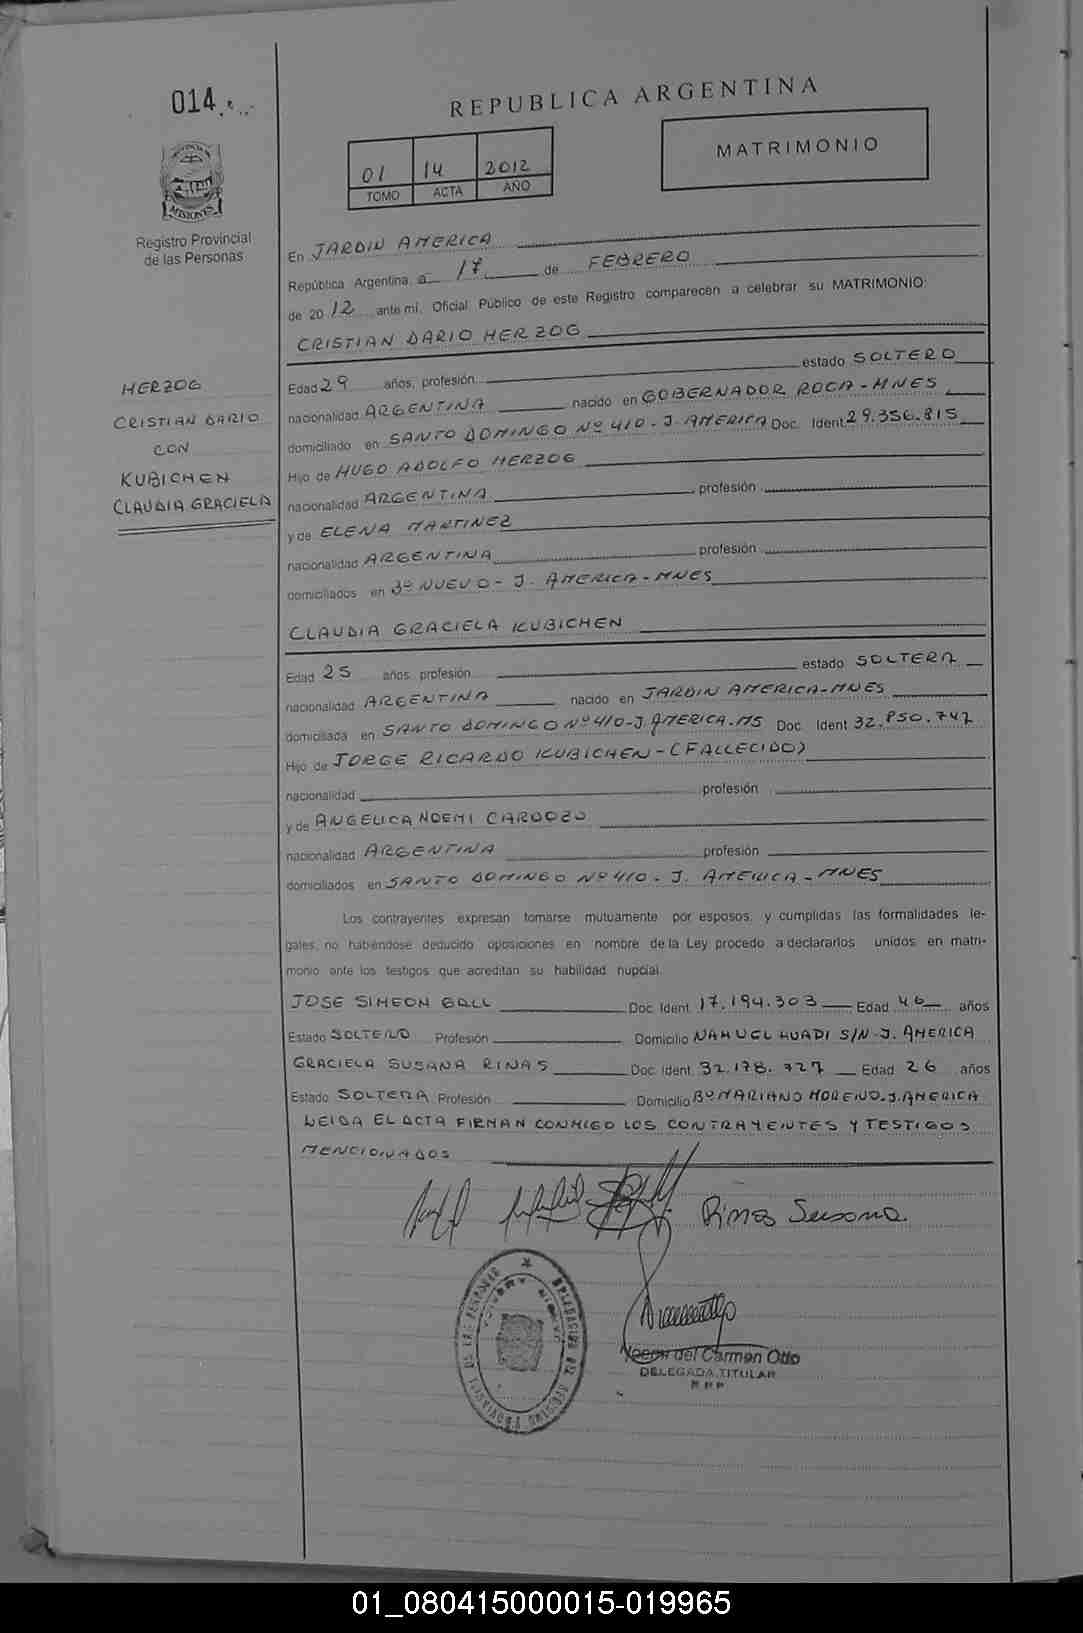 014
REPUBLICA ARGENTINA
MATRIMONIO
01 14 2012
TOMO ACTA AÑO
MISIONES
Registro Provincial
de las Personas
En JARDIN AMERICA
República Argentina, a 17 de FEBRERO
de 2012 ante mí, Oficial Público de este Registro comparecen a celebrar su MATRIMONIO:
CRISTIAN DARIO HERZOG
HERZOG
CRISTIAN DARIO
CON
KUBICHEN
CLAUDIA GRACIELA
Edad 29 años, profesión estado SOLTERO
nacionalidad ARGENTINA nacido en GOBERNADOR ROCA - MNES
domiciliado en SANTO DOMINGO Nº 410 - J. AMERICA Doc. Ident. 29.356.815
Hijo de HUGO ADOLFO HERZOG
nacionalidad ARGENTINA profesión
y de ELENA MARTINEZ
nacionalidad ARGENTINA profesión
domiciliados en Bº NUEVO - J. AMERICA - MNES
CLAUDIA GRACIELA KUBICHEN
Edad 25 años, profesión estado SOLTERA
nacionalidad ARGENTINA nacido en JARDIN AMERICA - MNES
domiciliada en SANTO DOMINGO Nº 410 - J. AMERICA. MS Doc. Ident. 32.850.747
Hijo de JORGE RICARDO KUBICHEN - (FALLECIDO)
nacionalidad profesión
y de ANGELICA NOEMI CARDOZO
nacionalidad ARGENTINA profesión
domiciliados en SANTO DOMINGO Nº 410 - J. AMERICA - MNES
Los contrayentes expresan tomarse mutuamente por esposos, y cumplidas las formalidades le-
gales, no habiéndose deducido oposiciones en nombre de la Ley procedo a declararlos unidos en matri-
monio ante los testigos que acreditan su habilidad nupcial.
JOSE SIMEON GALL Doc. Ident. 17.194.303 Edad 46 años
Estado SOLTERO Profesión Domicilio NAHUEL HUAPI S/N - J. AMERICA
GRACIELA SUSANA RINAS Doc. Ident. 32.178.727 Edad 26 años
Estado SOLTERA Profesión Domicilio Bº MARIANO MORENO - J. AMERICA
LEIDA EL ACTA FIRMAN CONMIGO LOS CONTRAYENTES Y TESTIGOS
MENCIONADOS
Rinas Susana.
del Carmen Otto
DELEGADA TITULAR
R P P
01_080415000015-019965